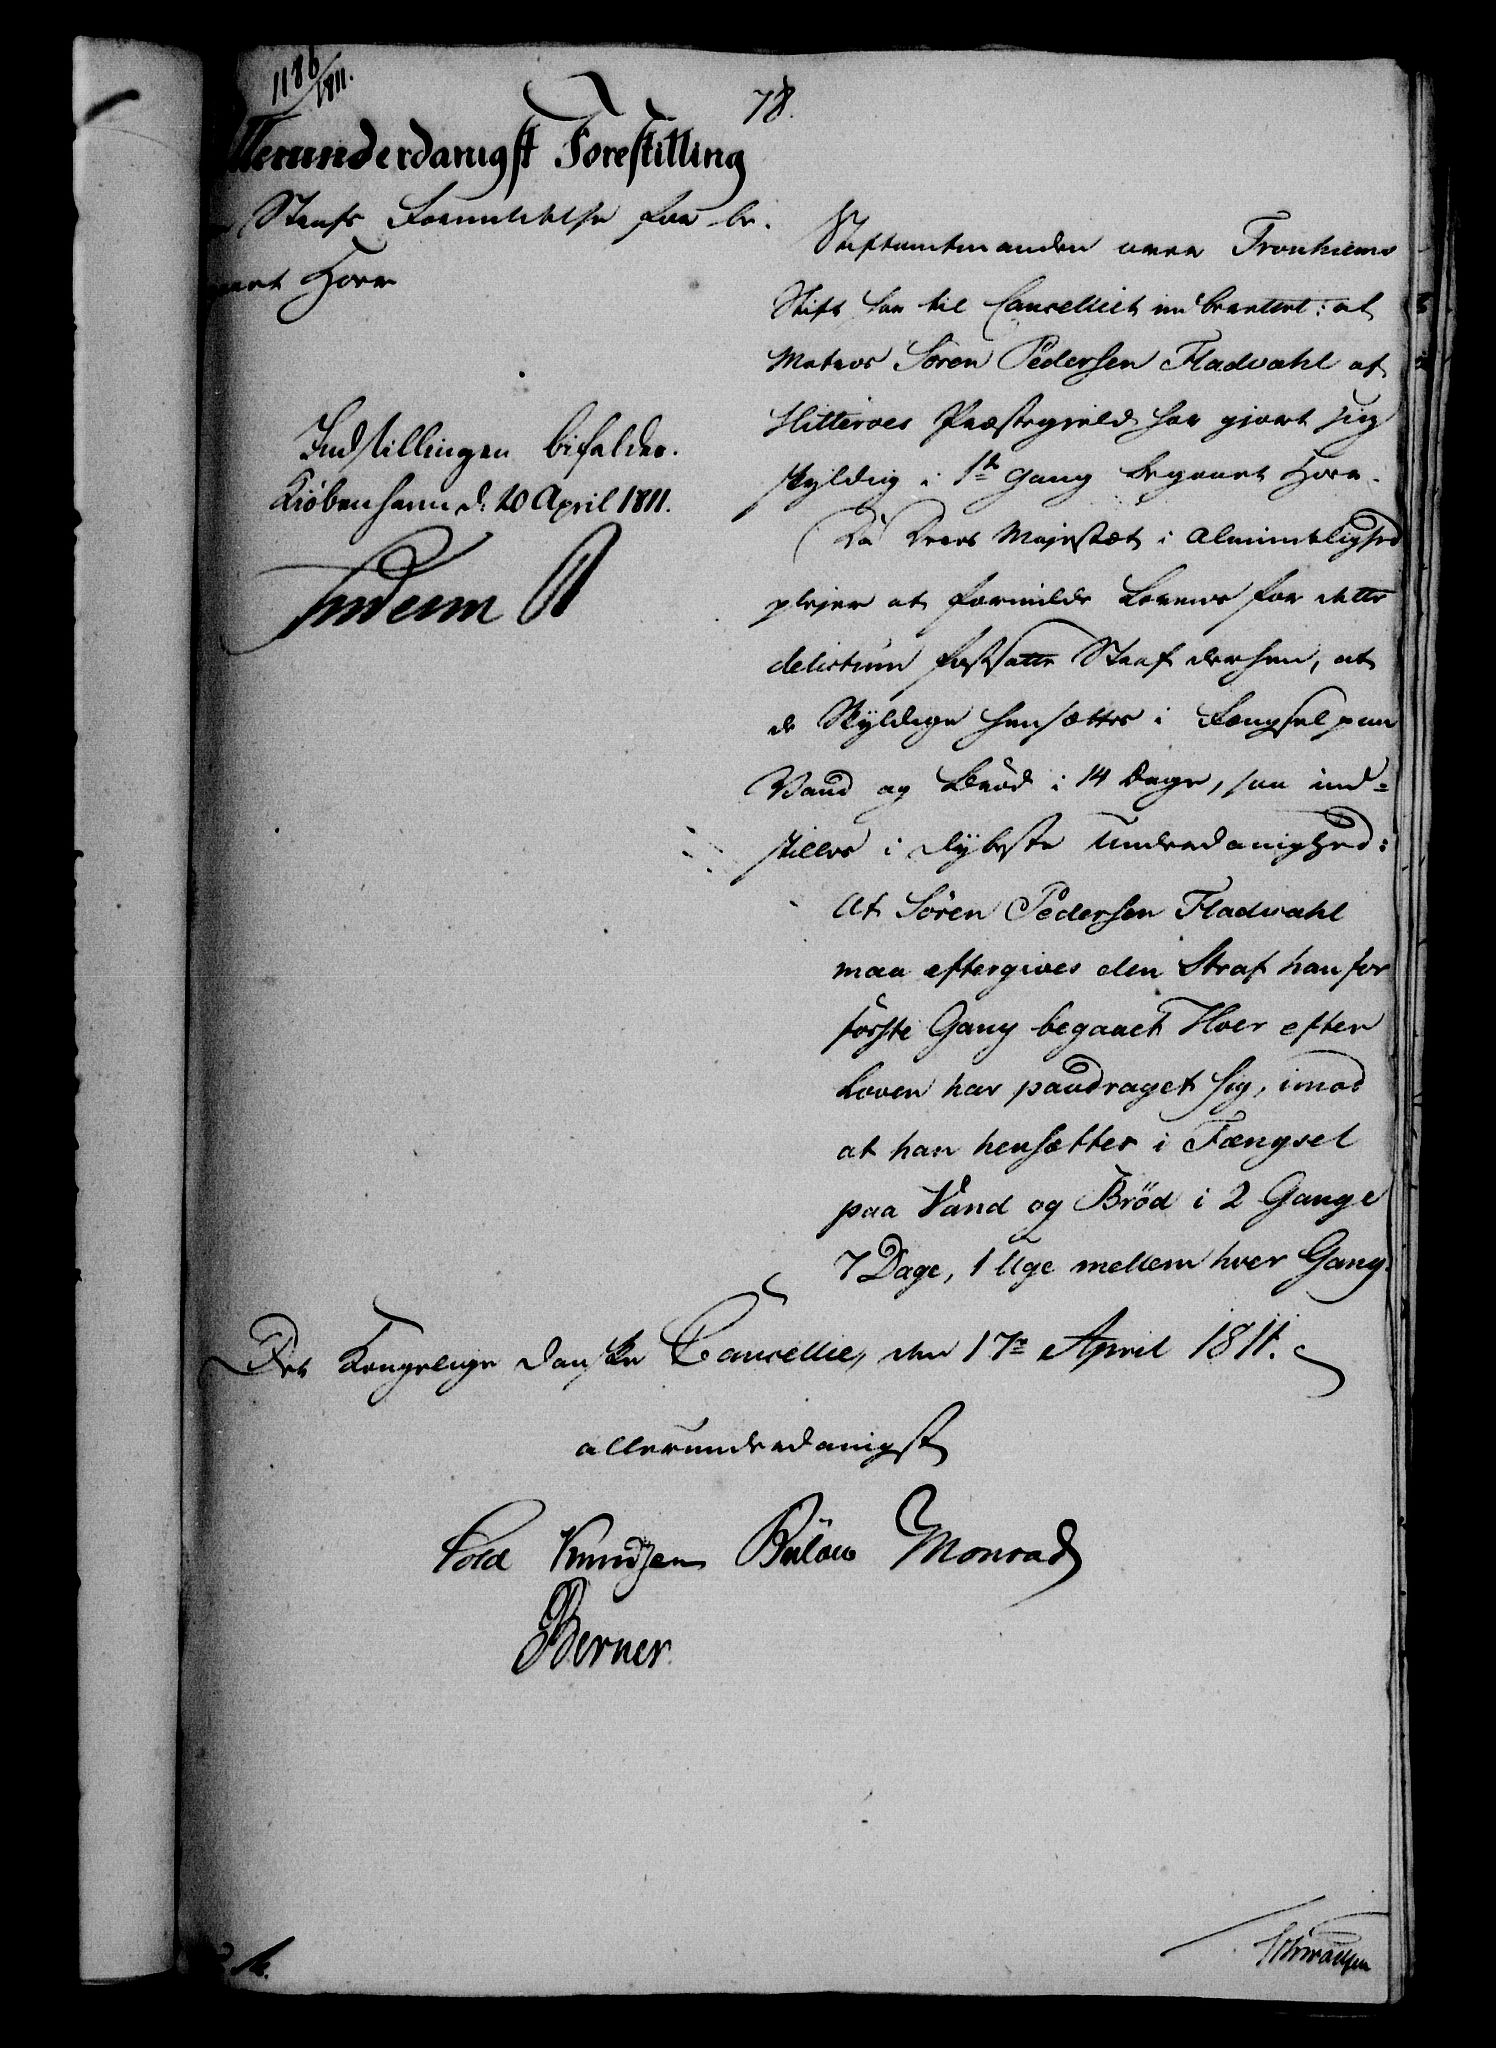 1186/1811.
78.
Allerunderdanigst Forestilling
Straffs Formildelse for be-
gaaet Hoer
Indstillingen bifaldes.
Kiöbenhavn d: 20 April 1811.
Frederik R
Stiftamtmanden over Tronhiems
Stift har til Cancelliet indberettet: at
Matros Sören Pedersen Fladvahl af
Hitteröes Præstegield har giort sig
skyldig i 1te Gang begaaet Hoer.
Da Deres Majestæt i Almindelighed
plejer at formilde Lovens for dette
delictum fastsatte Straf derhen, at
de Skyldige hensættes i Fængsel paa
Vand og Bröd i 14 Dage, saa ind-
stilles i dybeste Underdanighed:
At Sören Pedersen Fladvahl
maa eftergives den Straf han for
förste Gang begaaet Hoer efter
Loven har paadraget sig, imod
at han hensættes i Fængsel
paa Vand og Bröd i 2 Gange
7 Dage, 1 Uge mellem hver Gang.
Det Kongelige danske Cancellie, den 17de April 1811.
allerunderdanigst
Cold Knudzen Bülow Monrad
Berner